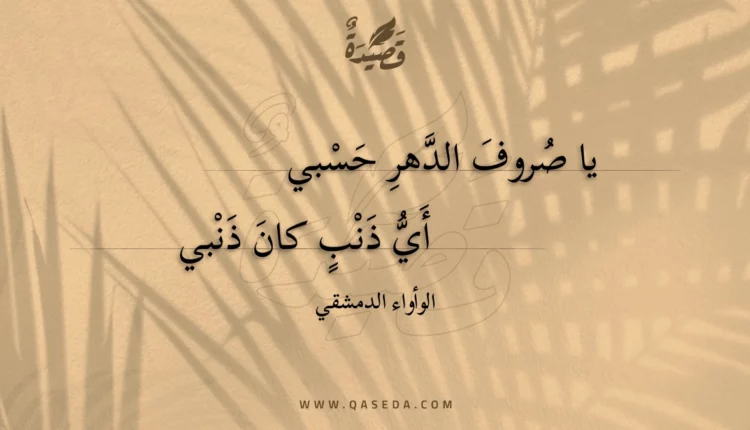 قَصِيدَةٌ
يا صُروفَ الدَّهرِ حَسْبي
أَيُّ ذَنْبٍ كانَ ذَنْبي
الوأواء الدمشقي
WWW.QASEDA.COM